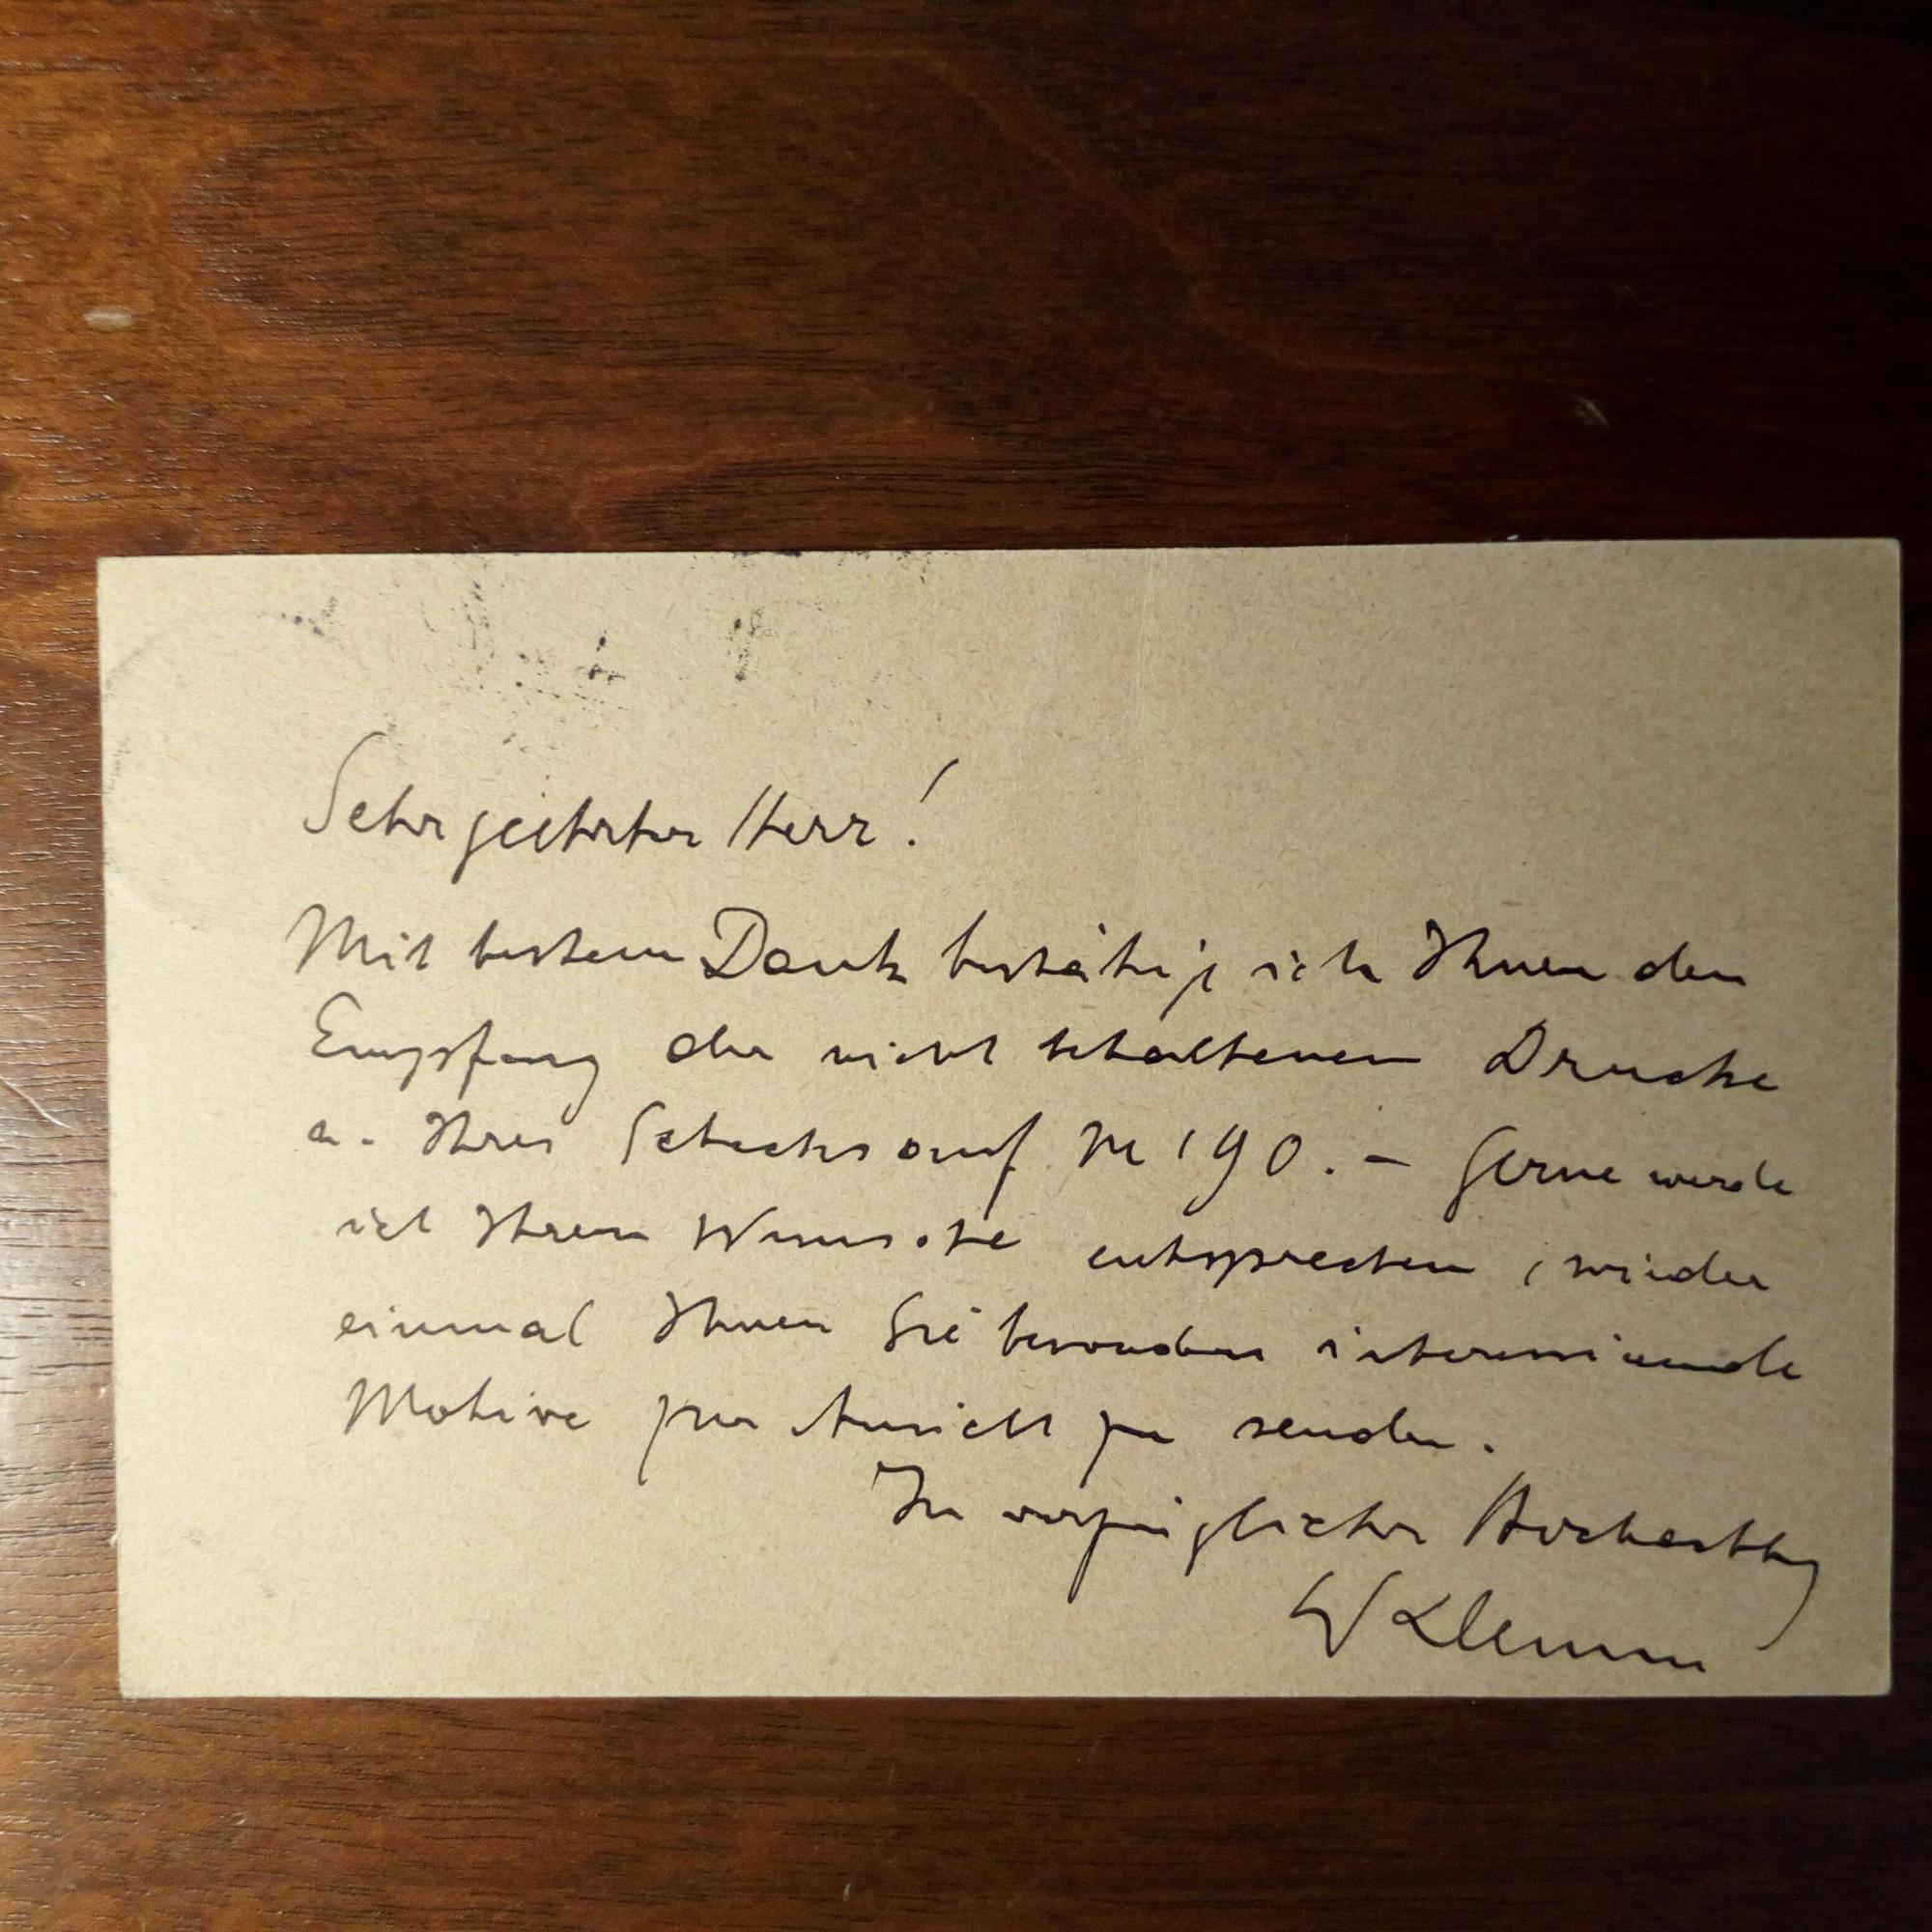 Sehr geehrter Herr!
Mit bestem Dank bestätige ich Ihnen den
Empfang der nicht behaltenen Drucke
u. Ihres Schecks auf M 190.– Gerne werde
ich Ihrem Wunsche entsprechen, wieder
einmal Ihnen Sie besonders interessierende
Motive zur Ansicht zu senden.
In vorzüglicher Hochachtg
W Klemm